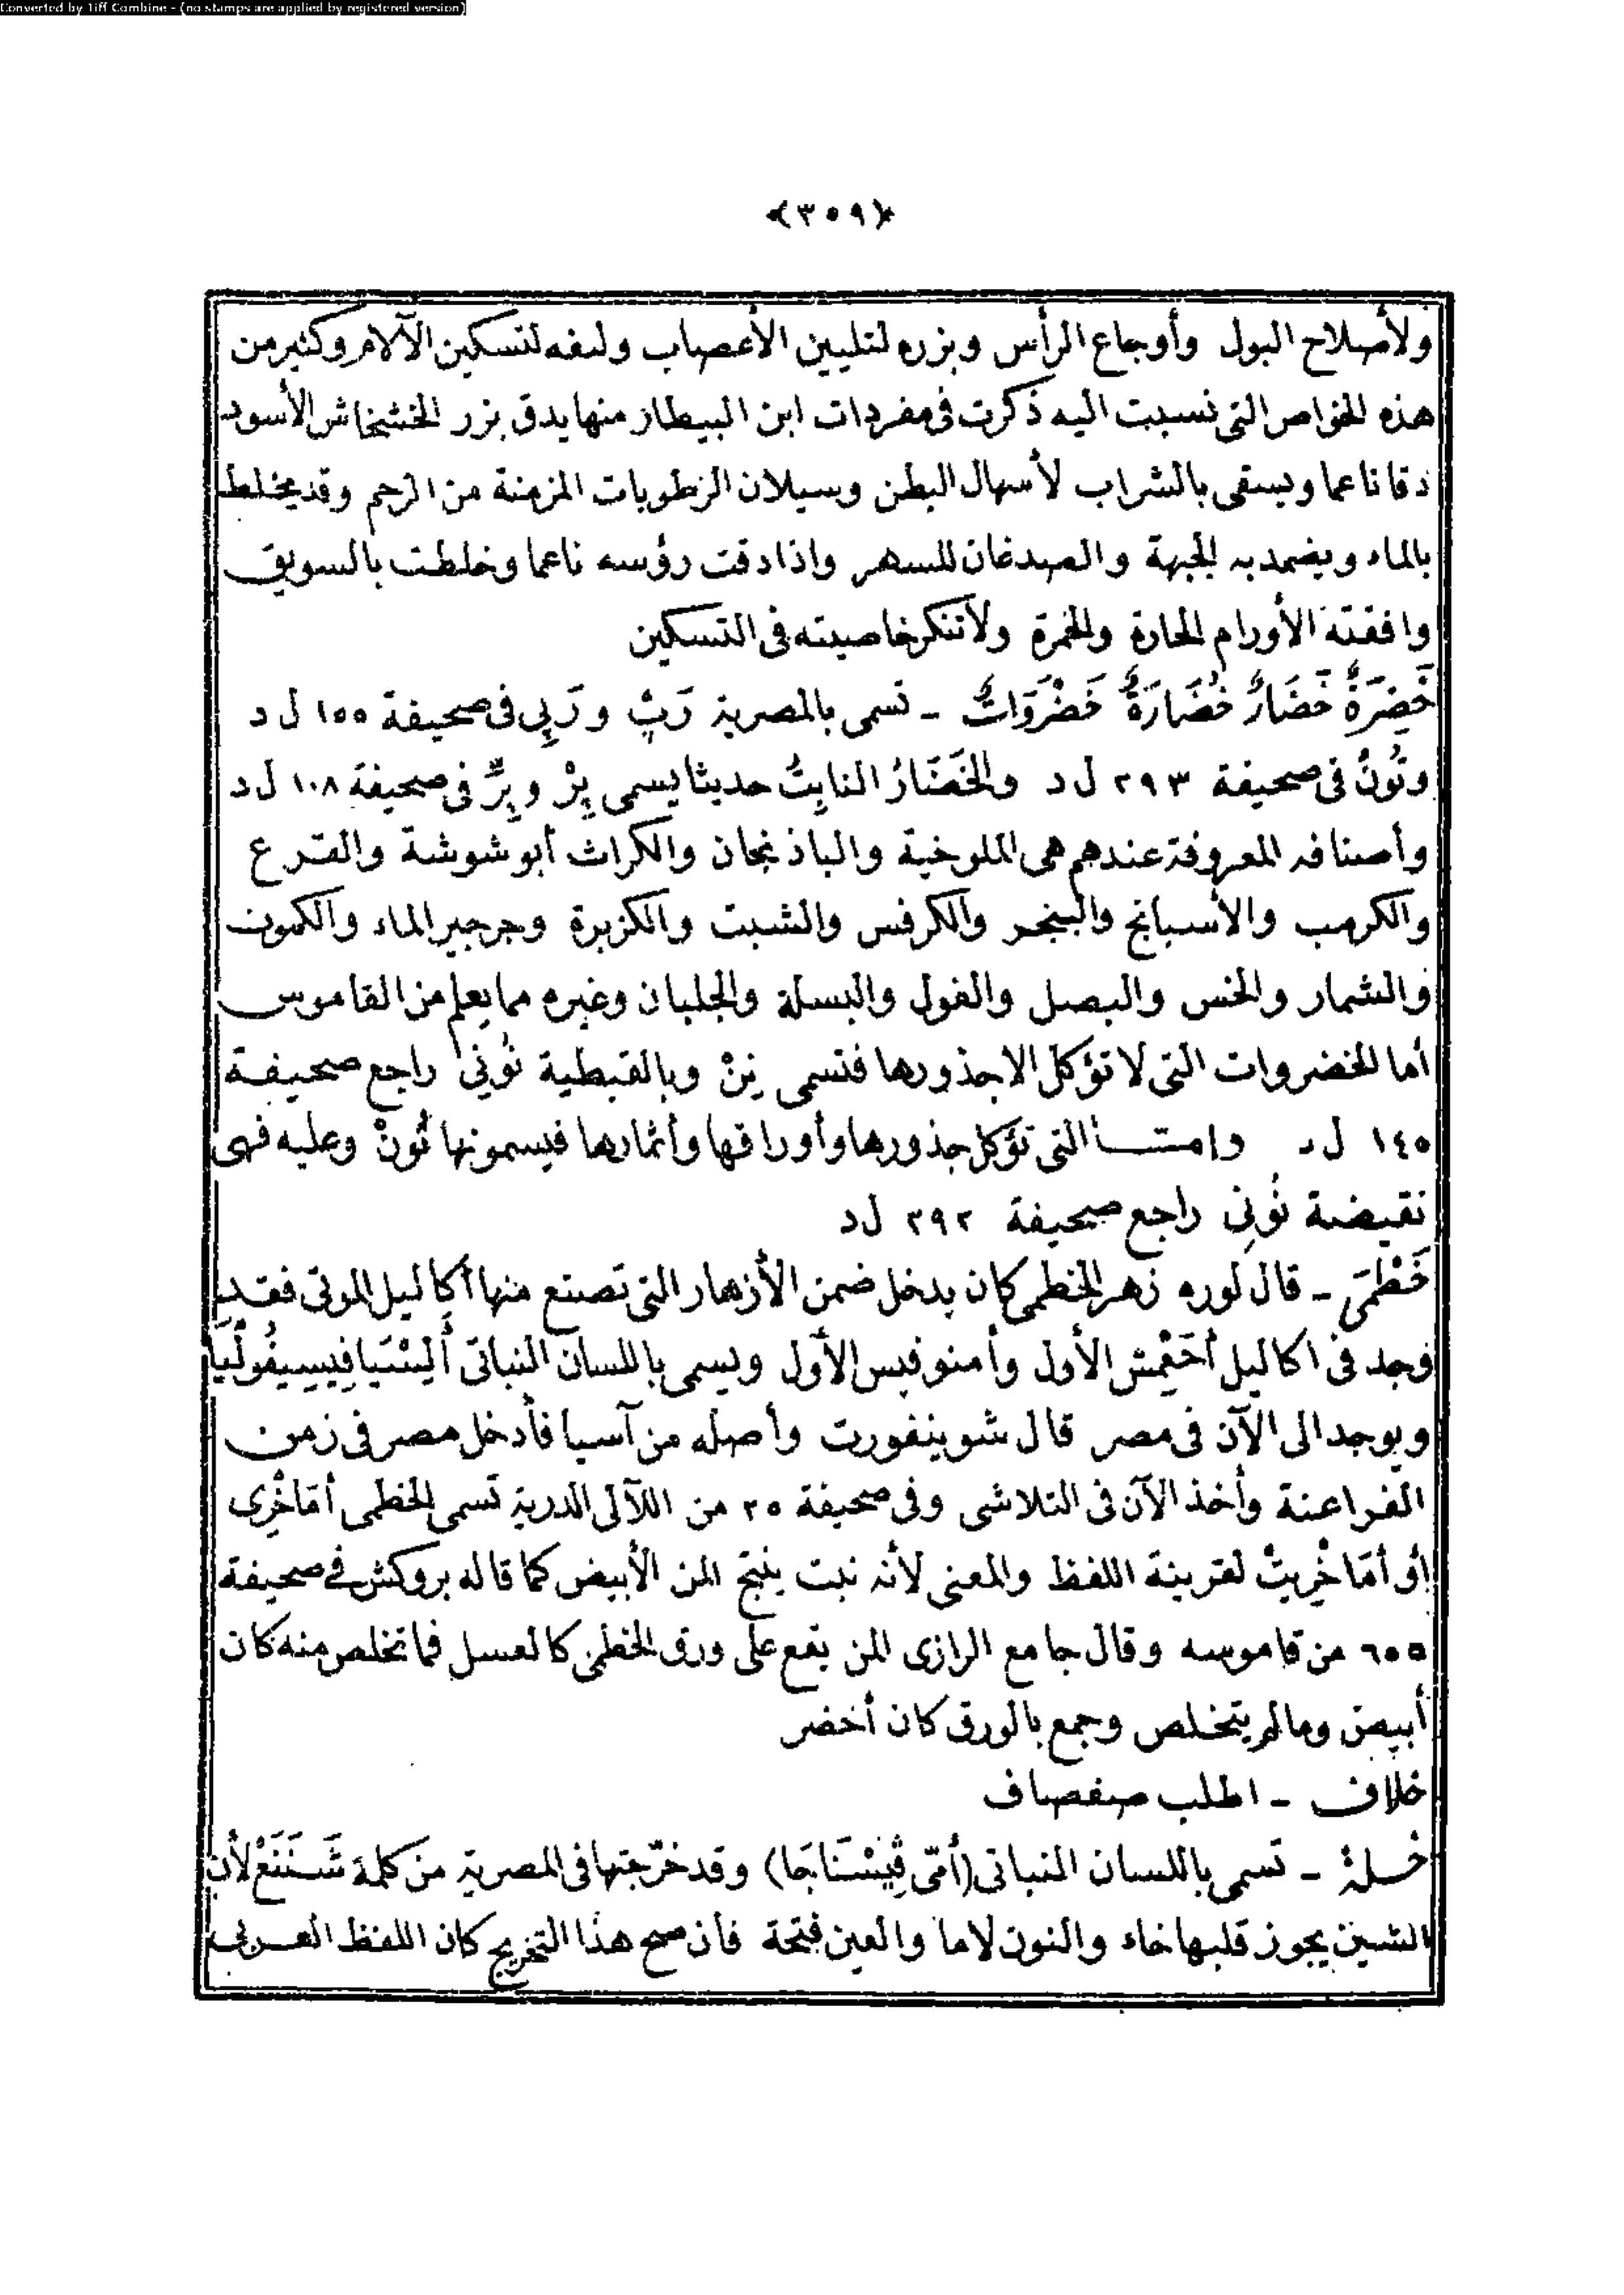 Converted by Tiff Combine - (no stamps are applied by registered version)
﴿٣٠٩﴾
ولأصلاح البول وأوجاع الرأس وبزره لتليين الأعصاب ولنفه لتسكين الآلام وكثير من
هذه الخواص التى نسبت اليه ذكرت فى مفردات ابن البيطار منها يدق بزر الخشخاش الأسود
دقا ناعما ويسقى بالشراب لأسهال البطن وسيلان الرطوبات المزمنة من الرحم وقد يخلط
بالماء ويضمد به الجبهة والصدغان للسهر واذا دقت رؤسه ناعما وخلطت بالسويق
وافقته الأورام الحارة والحمرة ولا تنكر خاصيته فى التسكين
خَضِرَةٌ خَضَارٌ خُضَارَةٌ خَضْرَوَاتٌ - تسمى بالمصرية رَبْ ورَبِى فى صحيفة ١٥٥ ل د
وتُونْ فى صحيفة ٢٩٣ ل د والخَضَارُ النابِتُ حديثا يسمى پِرْ وپِرِّ فى صحيفة ١٠٨ ل د
وأصنافه المعروفة عندهم هى الملوخية والباذنجان والكراث أبو شوشة والقرع
والكرمب والأسبانج والبنجر والكرفس والشبت والكزبرة وجرجير الماء والكمون
والشمار والخس والبصل والفول والبسلة والجلبان وغيره مما يعلم من القاموس
أما الخضروات التى لا تؤكل الا جذورها فتسمى نِنْ وبالقبطية نُونِى راجع صحيفة
١٤٥ ل د وامتا التى تؤكل جذورها وأوراقها وأثمارها فيسمونها تُونْ وعليه فهى
نقيضة نُونِى راجع صحيفة ٢٩٢ ل د
خَطْمَى - قال لوره زهر الخطمى كان يدخل ضمن الأزهار التى تصنع منها أكاليل الموتى فقد
وجد فى اكاليل أَحَعْمِش الأول وأمنوفيس الأول ويسمى باللسان النباتى أَلِسْتَيافِيسِيفُولْيَا
ويوجد الى الآن فى مصر قال شوينفورت وأصله من آسيا فأدخل مصر فى زمن
الفراعنة وأخذ الآن فى التلاشى وفى صحيفة ٢٥ من اللآلى الدرية تسمى الخطمى أمَاخْرِى
أو أمَاخْرِيتْ لقرينة اللفظ والمعنى لأنه نبت ينتج المن الأبيض كما قاله بروكش فى صحيفة
٦٥٥ من قاموسه وقال جامع الرازى المن يقع على ورق الخطمى كالعسل فما تخلص منه كان
أبيض وما لم يتخلص وجمع بالورق كان أخضر
خلاف - اطلب صفصاف
خلة - تسمى باللسان النباتى (أمّى ڤِيسْنَاجَا) وقد خرّجتها فى المصرية من كلمة شَنَنَعْ لأن
الشين يجوز قلبها خاء والنون لاما والعين فتحة فان صح هذا التخريج كان اللفظ العربى